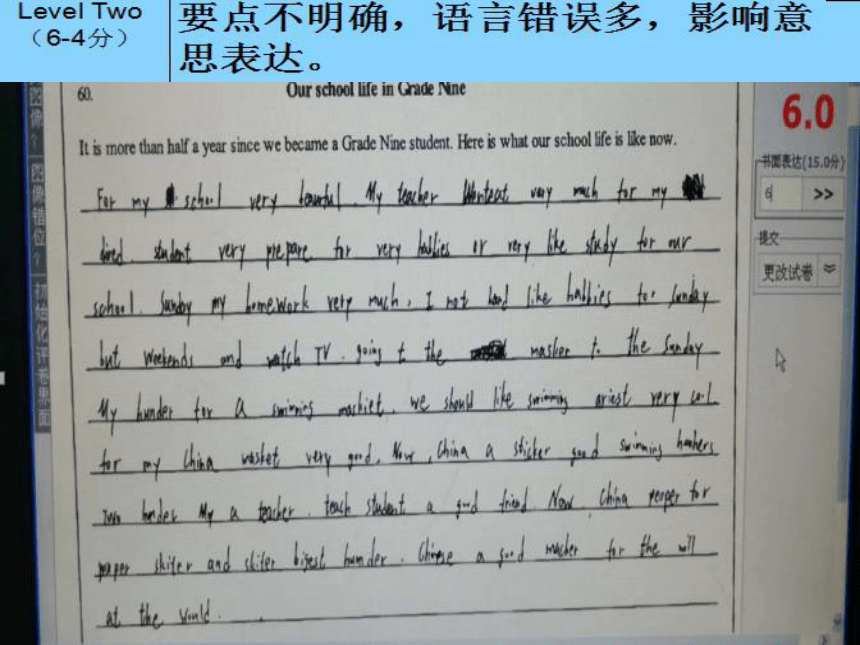 Level Two
（6-4分）
要点不明确，语言错误多，影响意
思表达。
60.
Our school life in Grade Nine
6.0
It is more than half a year since we became a Grade Nine student. Here is what our school life is like now.
书面表达(15.0分)
6
>>
提交
更改试卷
图像？
图像错位？
初始化评卷界面
For my school very My teacher very much for my
tired. student very prepare for very habbies or very like study for our
school. Sunday my homework very much, I not like habbies for Sunday
but weekends and watch TV. going to the masker to the Sunday
My hunder for a swimming maskiet. we should like swimming ariest very cool
for my China very good. Now, China a sticker good swimming
two My a teacher. teach student a good friend. Now, China for
skiter and skiter bigest humder. Chinese a good masker for the will
at the would.